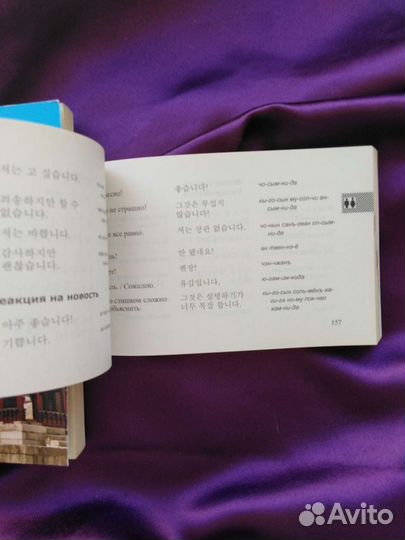 저는 고 싶습니다.
죄송하지만 할 수
없습니다.
저는 바쁩니다.
감사하지만
괜찮습니다.
еакция на новость
아주 좋습니다!
기쁩니다.
есно!
좋습니다!
чо-сым-ни-да
не страшно!
그것은 무섭지
않습니다!
кы-го-сын му-соп-чи ан-
сым-ни-да
е все равно.
저는 상관 없습니다.
чо-нын санъ-гван оп-сым-
ни-да
안 됐네요!
ан твен-нэ-ё
рт!
젠장!
чэн-чжанъ
ль. / Сожалею.
유감입니다.
ю-гам-им-нида
о слишком сложно
объяснить.
그것은 설명하기가
너무 복잡 합니다.
кы-го-сын соль-мёнъ-ха-
ги-га но-му пок-чап
хам-ни-да
157
Avito